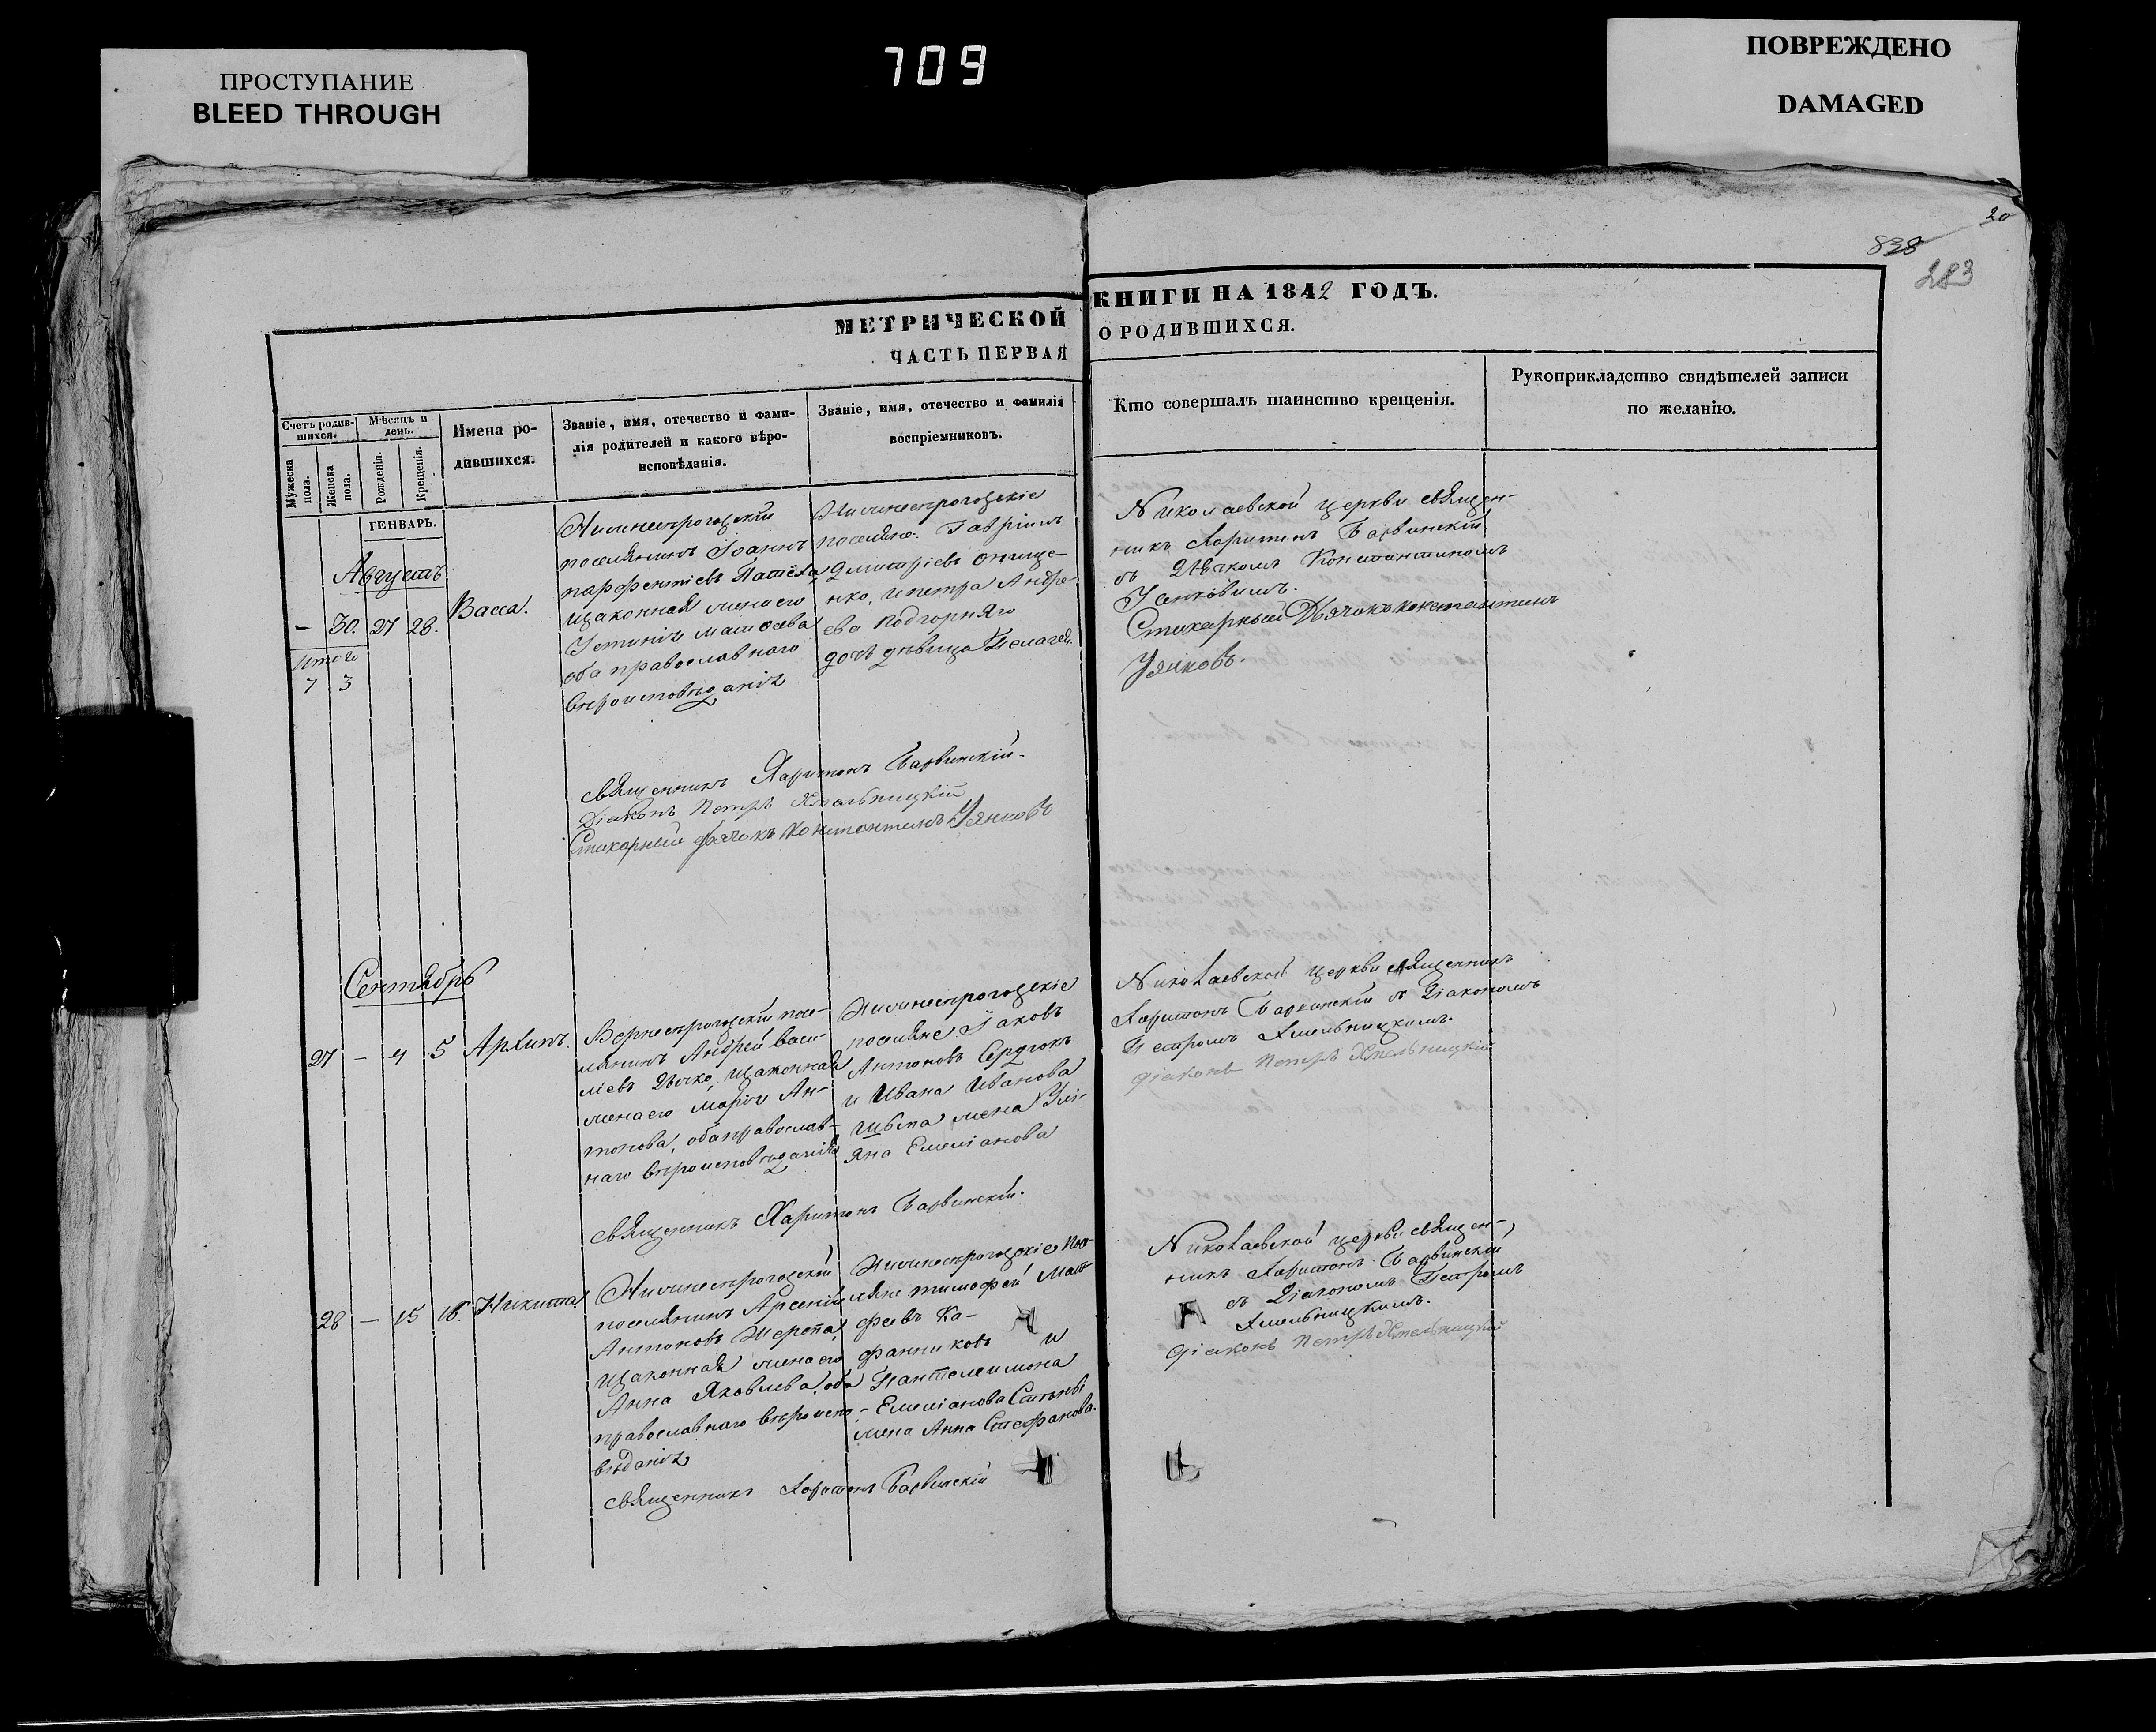 ПРОСТУПАНИЕ
BLEED THROUGH
709
ПОВРЕЖДЕНО
DAMAGED
20
838
283
МЕТРИЧЕСКОЙ
ЧАСТЬ ПЕРВАЯ
КНИГИ НА 1842 ГОДЪ.
О РОДИВШИХСЯ.
Счетъ родив-
шихся.
Мужеска
пола.
Женска
пола.
Мѣсяцъ и
день.
Рожденія.
Крещенія.
Имена ро-
дившихся.
Званіе, имя, отечество и фами-
лія родителей и какого вѣро-
исповѣданія.
Званіе, имя, отечество и фамилія
воспріемниковъ.
Кто совершалъ таинство крещенія.
Рукоприкладство свидѣтелей записи
по желанію.
ГЕНВАРЬ.
Августъ
- 30. 27 28.
Васса.
Итого
7 3
Нижнесѣрогозскій
поселянинъ Іоаннъ
парфентіевъ
изаконная жена его
Устинія
оба православнаго
вѣроисповѣданія
Нижнесѣрогозскіе
поселяне: Гавріилъ
Дмитріевъ Онище-
нко, и петра Андре-
ева Подгорняго
дочь дѣвица Пелагея.
Николаевской церкви священ-
никъ Харитонъ Барвинскій
съ Дьячкомъ Константиномъ
Стихарный Дьячокъ константинъ
священникъ Харитонъ Барвинскій
Діаконъ Петръ Хмельницкій
Стихарный дьячокъ Константинъ
Сентябрь
27 - 4 5 Архипъ.
Верхнесѣрогозскій посе-
лянинъ Андрей васи-
ліевъ Дячко, изаконная
жена его Марія Ан-
тонова, оба православ-
наго вѣроисповѣданія
Нижнесѣрогозскіе
поселяне Іаковъ
Антоновъ Сердюкъ
и Ивана Иванова
жена Улі-
яна Емеліанова
Николаевской церкви священникъ
Харитонъ Барвинскій съ Діакономъ
Петромъ Хмельницкимъ.
діаконъ Петръ Хмельницкій
священникъ Харитонъ Барвинскій.
28 - 15 16. Никита
Нижнесѣрогозскій
поселянинъ Арсеній
Антоновъ
изаконная жена его
Анна Яковлева, оба
православнаго вѣроиспо-
вѣданія
Нижнесѣрогозскіе посе-
ляне тимофей Мат-
фіевъ Ка-
фанниковъ и
Пантелеимона
Емеліанова
жена Анна Стефанова.
Николаевской церкви священ-
никъ Харитонъ Барвинскій
съ Діакономъ Петромъ
Хмельницкимъ.
діаконъ Петръ Хмельницкій
священникъ Харитонъ Барвинскій